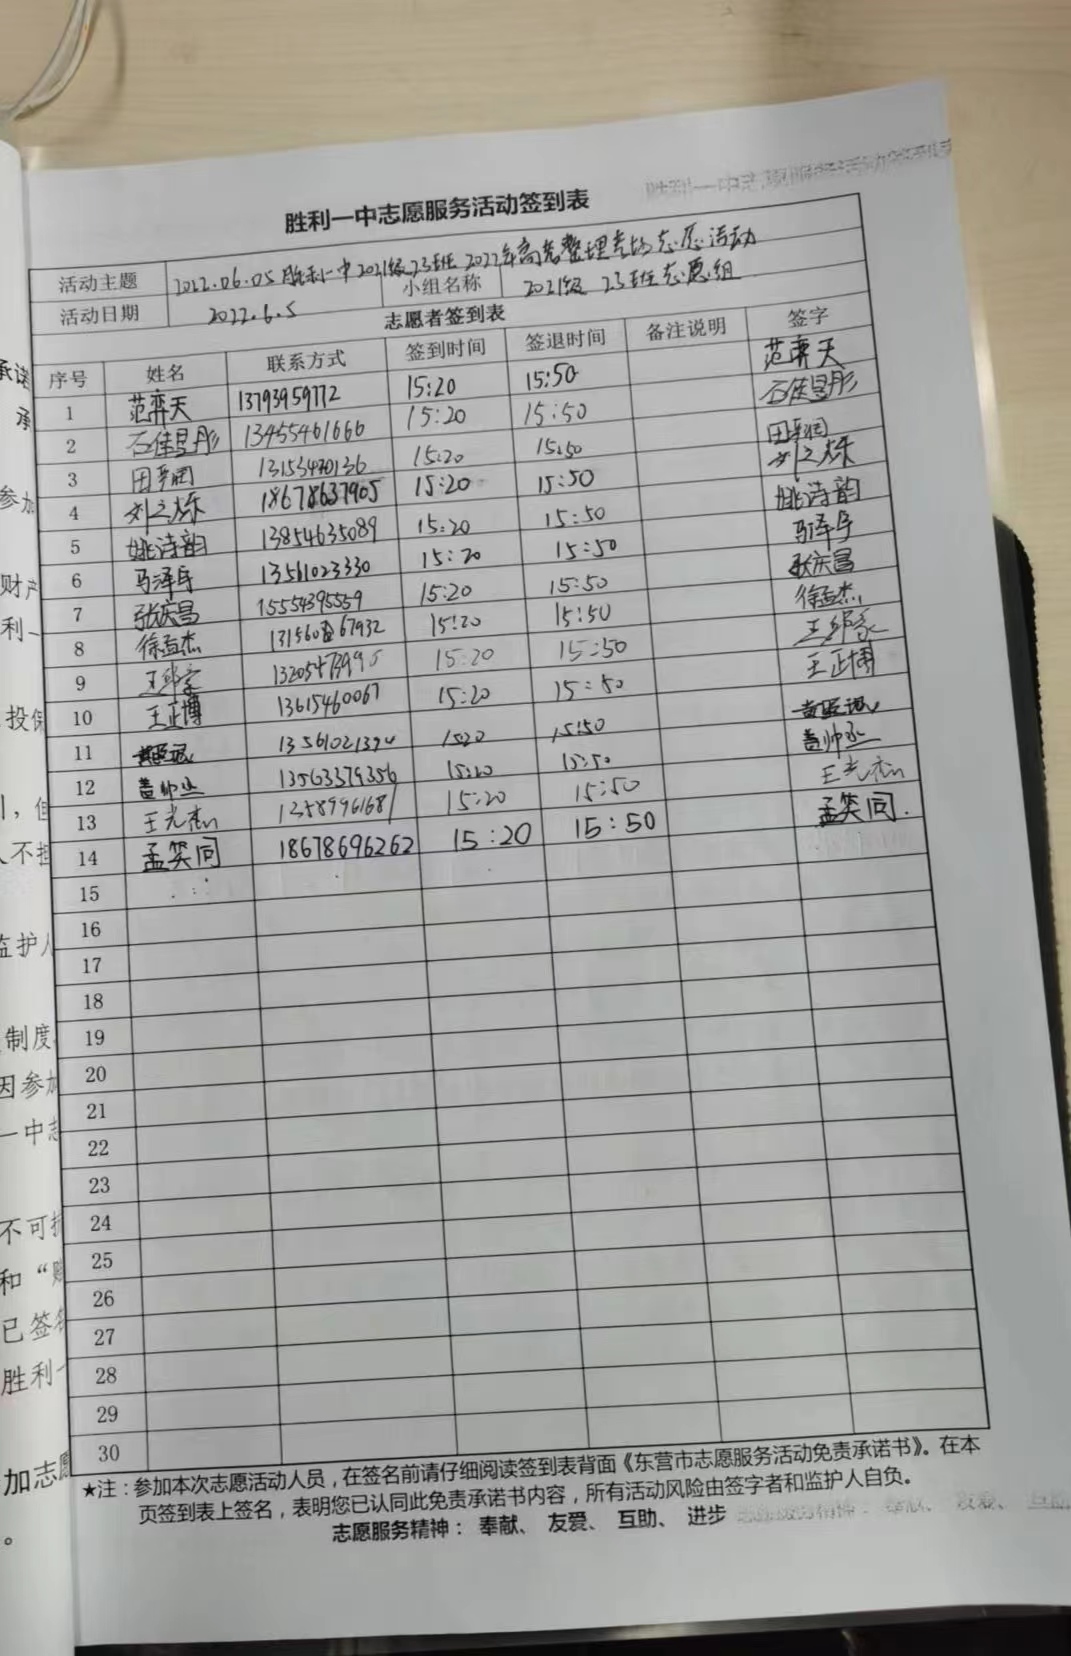 胜利一中志愿服务活动签到表
活动主题 2022.06.05胜利一中2021级23班2022年高考整理考场志愿活动
活动日期 2022.6.5 小组名称 2021级 23班志愿组
志愿者签到表
序号 姓名 联系方式 签到时间 签退时间 备注说明 签字
1 范弈天 13793959772 15:20 15:50 范弈天
2 石佳昱彤 13455461666 15:20 15:50 石佳昱彤
3 15:20 15:50
4 刘之烁 18678637905 15:20 15:50 刘之烁
5 姚诗韵 13854635089 15:20 15:50 姚诗韵
6 马泽宇 13561023330 15:20 15:50 马泽宇
7 张庆昌 15554395559 15:20 15:50 张庆昌
8 徐孟杰 15:20 15:50 徐孟杰
9 15:20 15:50
10 王正博 13615460067 15:20 15:50 王正博
11 15:20 15:50
12 盖帅丞 13563379356 15:20 15:50 盖帅丞
13 王光杰 13589961681 15:20 15:50 王光杰
14 孟笑同 18678696262 15:20 15:50 孟笑同.
15
16
17
18
19
20
21
22
23
24
25
26
27
28
29
30
★注：参加本次志愿活动人员，在签名前请仔细阅读签到表背面《东营市志愿服务活动免责承诺书》。在本
页签到表上签名，表明您已认同此免责承诺书内容，所有活动风险由签字者和监护人自负。
志愿服务精神： 奉献、 友爱、 互助、 进步